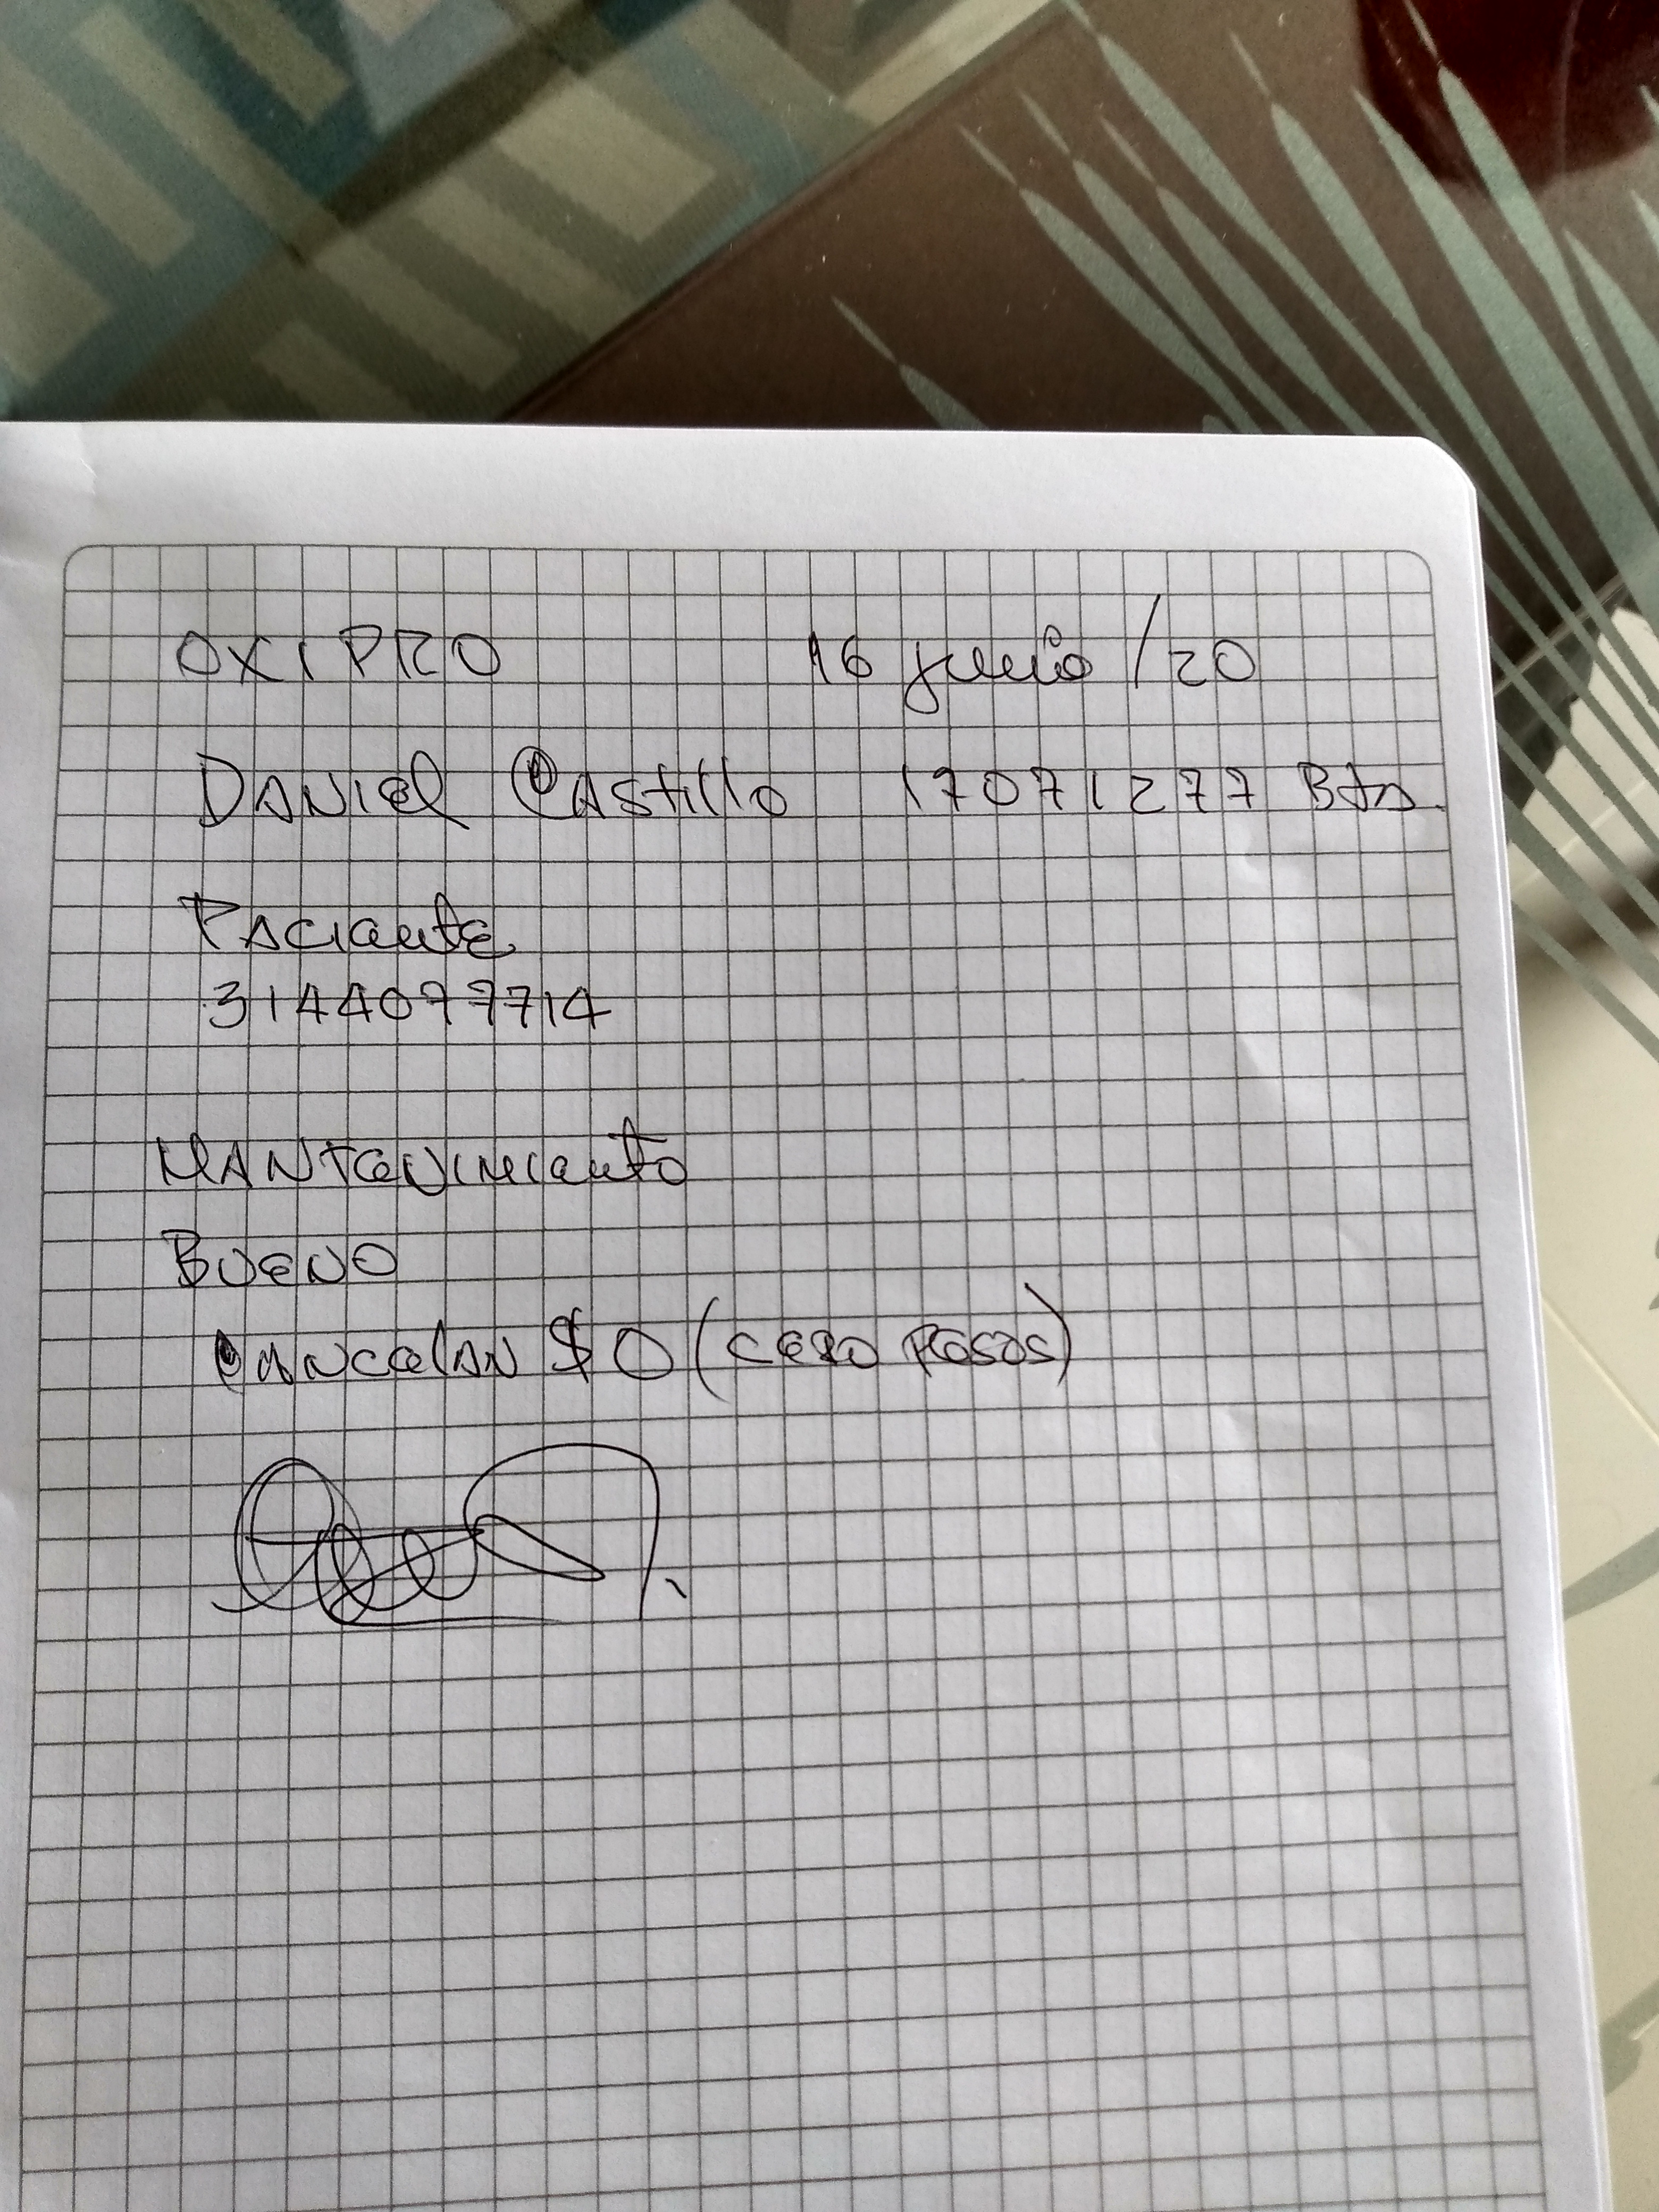 OXIPRO 16 junio /20
DANIEL CASTILLO 17071277 Bta.
PACIENTE
3144097714
MANTENIMIENTO
BUENO
CANCELAN $0 (CERO PESOS)